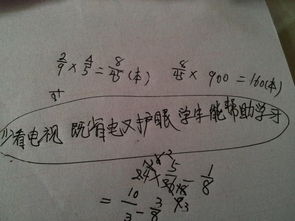 2/9 × 4/5 = 8/45 (本) 8/45 × 900 = 160 (本)
少看电视 既省电又护眼 学生能帮助学习
= 10/3 - 3/8